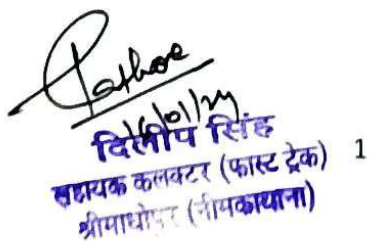 दिलीप सिंह
सहायक कलक्टर (फास्ट ट्रेक) 1
श्रीमाधोपुर (नीमकाथाना)